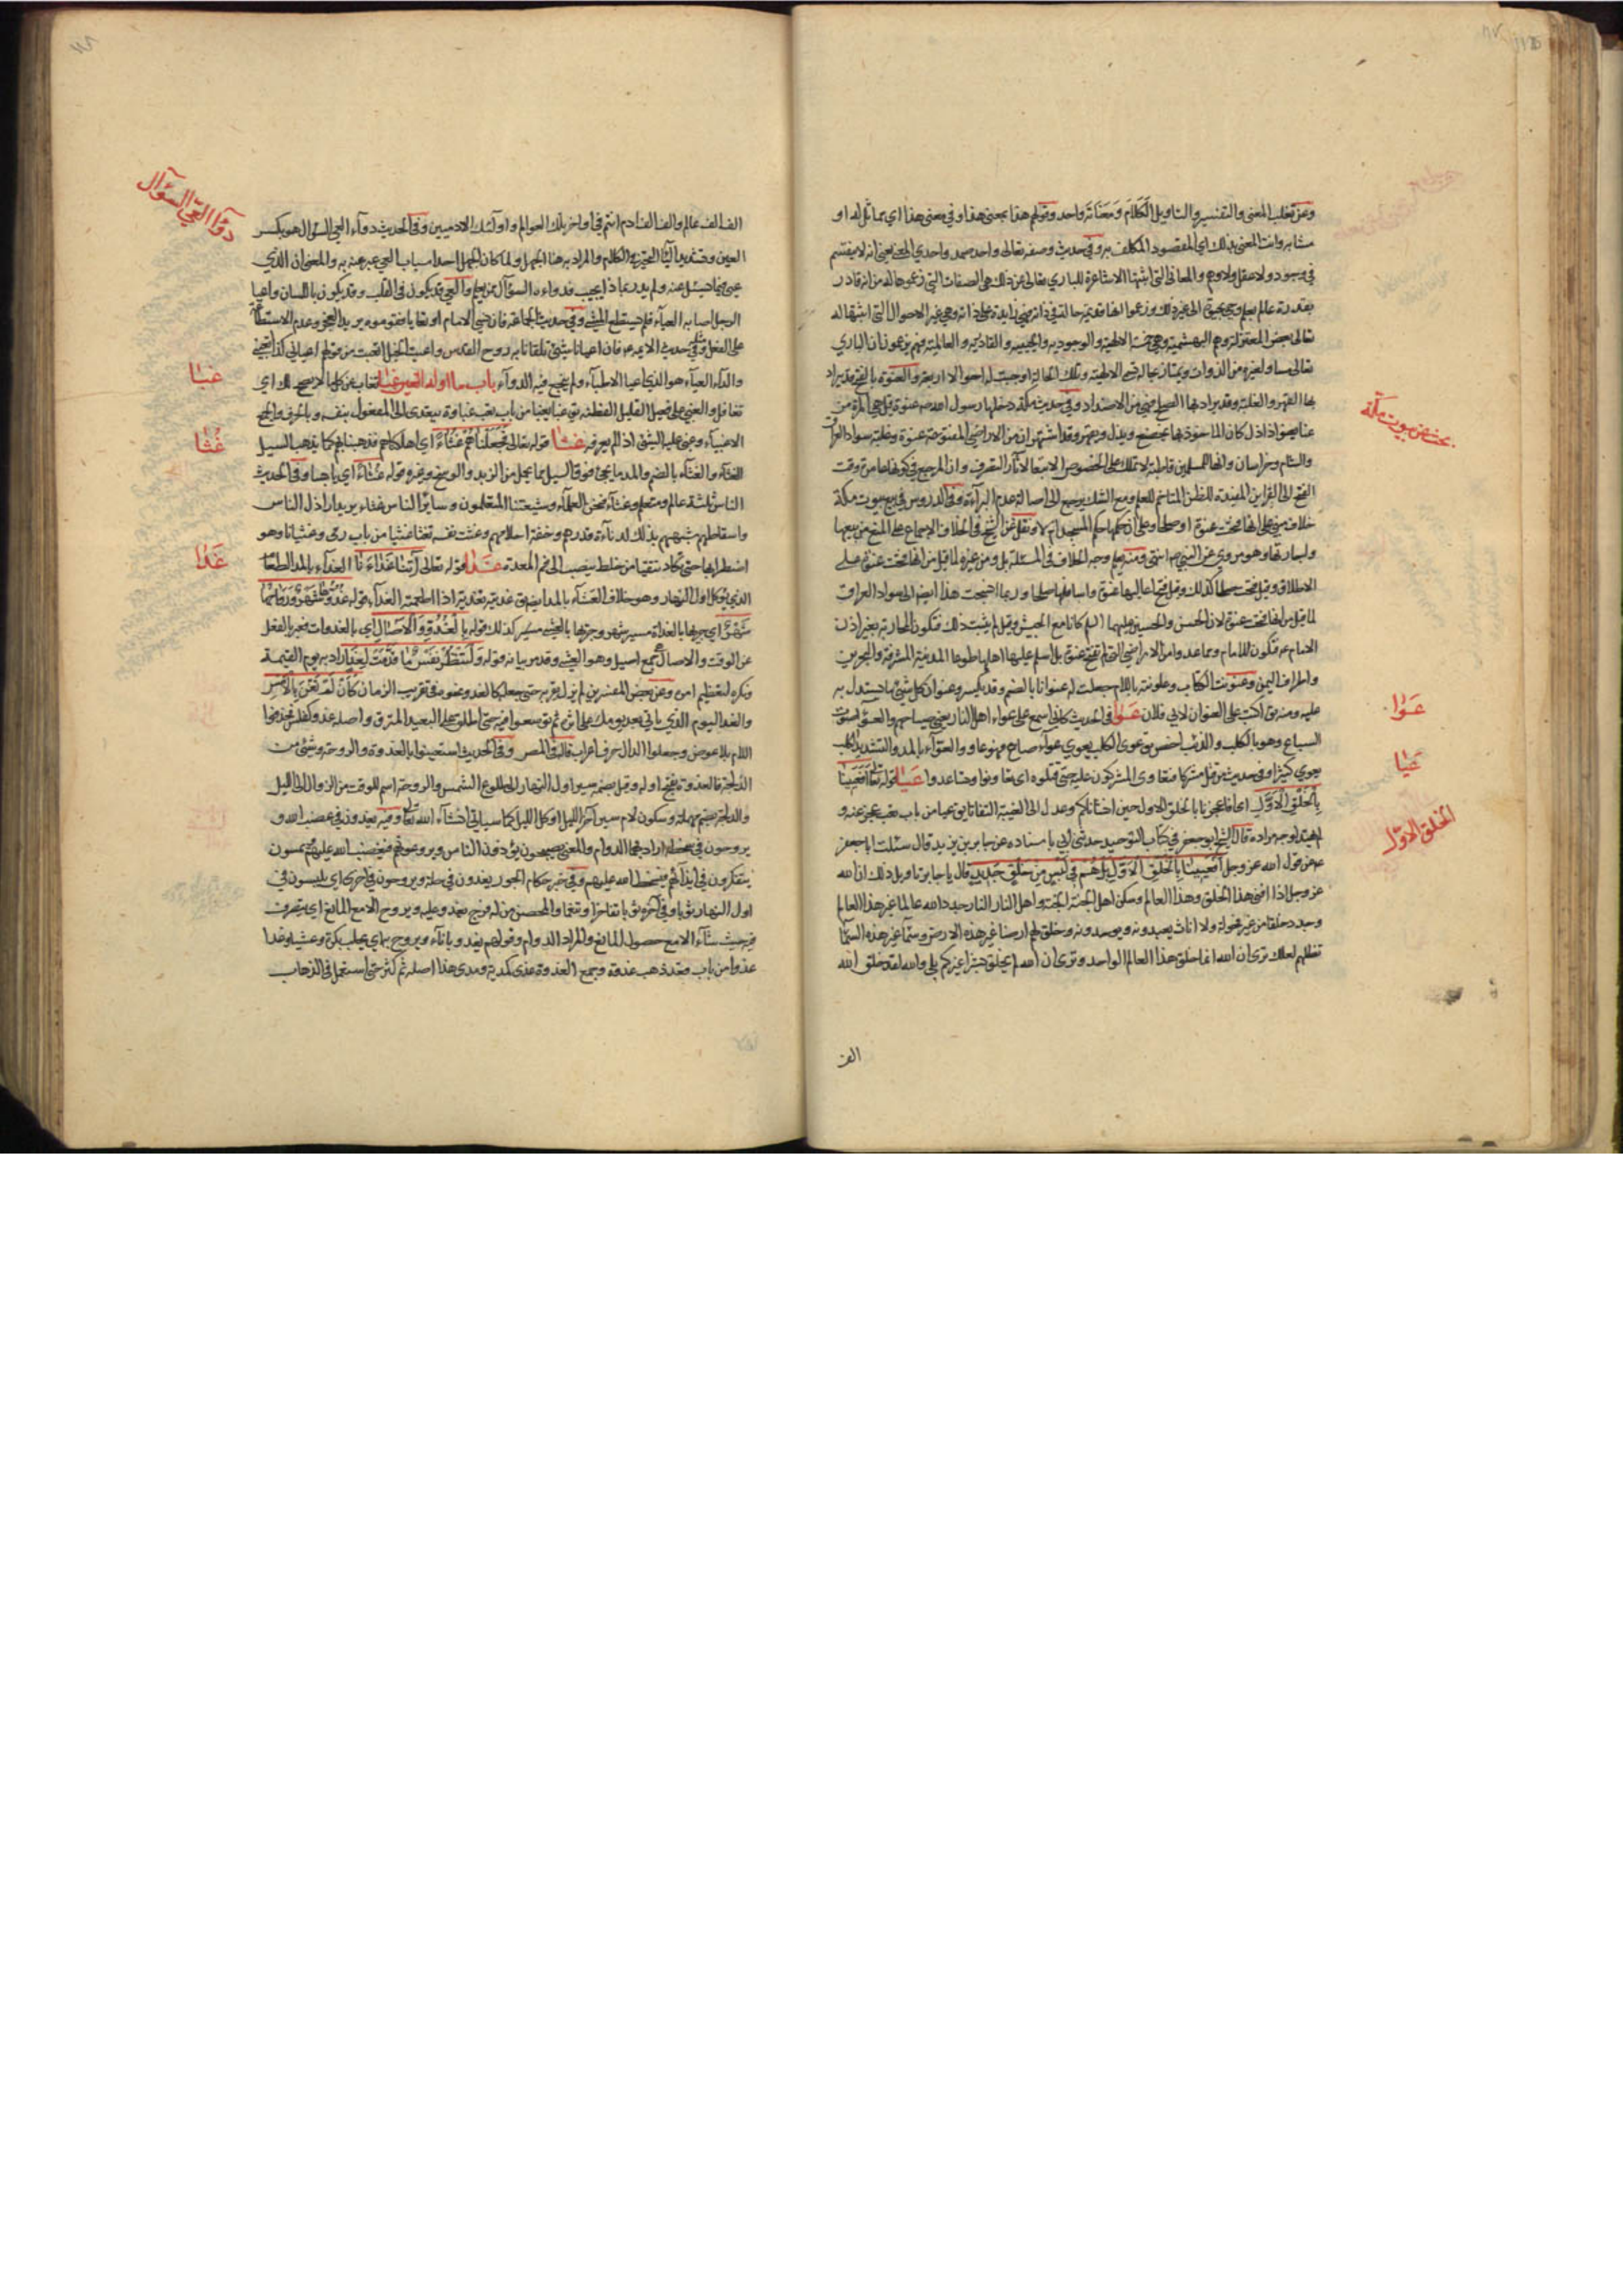 وعن ثعلب المعنى والتفسير والتاويل الكلام ومعناته واحد وقولهم هذا بمعنى هذا وفي معنى هذا اي مماثل له او
مشابه وانت المعنى بذلك اي المقصود المكلف به وفي حديث وصفه تعالى واحد صمد واحدي المعنى يعني انه لا ينقسم
في وجود ولا عقل ولا وهم والمعاني التي اثبتها الاشاعرة للباري تعالى عن ذلك هي الصفات التي زعموها له من انه قادر
بقدرة عالم بعلم وحي بحيوة الى غير ذلك وزعموا انها قديمة حالة في ذاته فهي زايدة على ذاته وهي غير الاحوال التي اثبتها له
تعالى بعض المعتزلة وهم البهشمية وهي خمسة الالهية والوجودية والحيية والقادرية والعالمية فهم يزعمون ان الباري
تعالى مساو لغيره من الذوات ويمتاز بحالة تسمى الالهية وتلك الحالة اوجبت له احوالا اربعة والعنوة بالفتح قد يراد
بها القهر والغلبة وقد يراد بها الصلح فهي من الاضداد وفي حديث مكة دخلها رسول الله ص عنوة قيل هي المرة من
عنا يعنو اذا ذل كان الماخوذ بها يخضع ويذل ويقهر وقد اشتهر ان من الاراضي المفتوحة عنوة وغلبة سواد العراق
والشام وخراسان وانها للمسلمين قاطبة لا تملك على الخصوص الا تبعا لآثار التصرف وان المرجع في كونها عامرة وقت
الفتح الى القراين المفيدة للظن المتاخم للعلم ومع الشك يرجع الى اصالة عدم البراءة وفي الدروس في بيع بيوت مكة
خلاف مبني على انها فتحت عنوة او صلحا وعلى ان حكمها حكم المسجد ام لا ونقل عن الشيخ في الخلاف الاجماع على المنع من بيعها
واجارتها وهو مروي عن النبي ص انتهى ومنه يعلم وجه الخلاف في المسئلة بل ومن غيره لما قيل من انها فتحت عنوة على
الاطلاق وقيل فتحت صلحا كذلك وقيل فتح اعاليها عنوة واسافلها صلحا وربما احتجت هذا ايضا الى سواد العراق
لما قيل من انها فتحت عنوة لان الحسن والحسين عليهما السلام كانا مع الجيش وقيل لم يثبت ذلك فتكون المحاربة بغير اذن
الامام ع فتكون للامام ومما عدوا من الاراضي التي لم تفتح عنوة بل اسلم عليها اهلها طوعا المدينة المشرفة والبحرين
واطراف اليمن وعنونت الكتاب وعلونته باللام جعلت له عنوانا بالضم وقد يكسر وعنوان كل شيئ ما يستدل به
عليه ومنه يق اكتب على العنوان لابي فلان عوا في الحديث كاني اسمع على عواء اهل النار يعني صياحهم والعواء صوت
السباع وهو بالكلب والذئب اخص يق عوى الكلب يعوي عواء صاح فهو عاو والعواء بالمد والتشديد الكلب
يعوي كثيرا وفي حديث من قتل مشركا فتعاوى المشركون عليه حتى قتلوه اي تعاونوا وتساعدوا عيا قوله تعالى افعيينا
بالخلق الاول اي افاعجزنا بالخلق الاول حين انشاناكم وعدل الى الغيبة التفاتا يق عيا من باب تعب عجز عنه و
لم يهتد لوجه مراده قال الشيخ ابو جعفر في كتاب التوحيد حدثني ابي باسناده عن جابر بن يزيد قال سئلت ابا جعفر
ع عن قول الله عز وجل افعيينا بالخلق الاول بل هم في لبس من خلق جديد قال يا جابر تاويل ذلك ان الله
عز وجل اذا افنى هذا الخلق وهذا العالم وسكن اهل الجنة الجنة واهل النار النار جدد الله عالما غير هذا العالم
وجدد خلقا من غير فحولة ولا اناث يعبدونه ويوحدونه وخلق لهم ارضا غير هذه الارض وسماء غير هذه السماء
تظلهم لعلك ترى ان الله انما خلق هذا العالم الواحد وترى ان الله لم يخلق بشرا غيركم بلى والله لقد خلق الله
الف
بحث في بيوت مكة
عوا
عيا
الخلق الاول
الف الف عالم والف الف ادم انتم في اواخر تلك العوالم واولئك الادميين وفي الحديث دواء العي السؤال هو بكسر
العين وتشديد الياء التحير في الكلام والمراد به هنا الجهل ولما كان الجهل احد اسباب العي عبر عنه به والمعنى ان الذي
عيي فيما يسئل عنه ولم يدر بماذا يجيب فدواءه السؤال ممن يعلم والعي قد يكون في القلب وقد يكون باللسان واعيا
الرجل اصابه العياء فلم يستطع المشي وفي حديث الجماعة فان نسي الامام او تعايا فقوموه يريد العجز وعدم الاستطاعة
على الفعل ومثله في حديث الائمة ع فان اعيانا شيئ تلقانا به روح القدس واعييت الخيل اتعبت من قولهم اعيالي كذا اتعبني
والداء العياء هو الذي اعيا الاطباء ولم ينجع فيه الدواء باب ما اوله الغين غبا تغاب عن كل ما لا يصح لك اي
تغافل والغبي على فعيل القليل الفطنة يق غبا يغبا من باب تعب غباوة يتعدى الى المفعول بنفسه وبالحرف والجمع
الاغبياء وغبي عليه الشيئ اذا لم يعرفه غثا قوله تعالى فجعلناهم غثاء اي اهلكناهم فذهبنا بهم كما يذهب السيل
الغثاء والغثاء بالضم والمد ما يجئ فوق السيل مما يحمل من الزبد والوسخ وغيره وقوله غثاء اي يابسا وفي الحديث
الناس ثلثة عالم ومتعلم وغثاء فنحن العلماء وشيعتنا المتعلمون وساير الناس غثاء يريد اراذل الناس
واسقاطهم شبههم بذلك لدناءة قدرهم وخفة احلامهم وغثت نفسه تغثا غثيا من باب رمى وغثيانا وهو
اضطرابها حتى تكاد تتقيا من خلط ينصب الى فم المعدة غدا قوله تعالى آتنا غداءنا الغداء بالمد الطعام
الذي يؤكل اول النهار وهو خلاف العشاء بالمد ايضا يق غديته تغدية اذا اطعمته الغداء قوله غدوها شهر ورواحها
شهر اي جريها بالغداة مسير شهر وجريها بالعشي مسير كذلك قوله بالغدو والآصال اي بالغدوات فعبر بالفعل
عن الوقت والاصال جمع اصيل وهو العشي وقد مر بيانه قوله ولتنظر نفس ما قدمت لغد اراد به يوم القيمة
ونكره لتعظيم امره وعن بعض المفسرين لم يزل يقربه حتى جعله كالغد ونحوه في تقريب الزمان كان لم تغن بالامس
والغد اليوم الذي ياتي بعد يومك على اثره ثم توسعوا فيه حتى اطلق على البعيد المترقب واصله غدو كفلس فحذفوا
اللام بلا عوض وجعلوا الدال حرف اعراب قاله في المصـ وفي الحديث استعينوا بالغدوة والروحة وشئ من
الدلجة فالغدوة بفتح اوله وقيل بضمه سير اول النهار الى طلوع الشمس والروحة اسم للوقت من الزوال الى الليل
والدلجة بضم مهملة وسكون لام سير آخر الليل او كل الليل كما سياتي انشاء الله تعالى وفيه يغدون في غضب الله و
يروحون في سخطه اراد بهما الدوام والمعنى يصبحون يؤذون الناس ويروعونهم فيغضب الله عليهم ويمسون
يتفكرون في ايذائهم فيسخط الله عليهم وفي خبر حكام الجور يغدون في حلة ويروحون في اخرى اي يلبسون في
اول النهار ثوبا وفي آخره ثوبا تفاخرا وتنعما
دواء العي السؤال
غبا
غثا
غدا